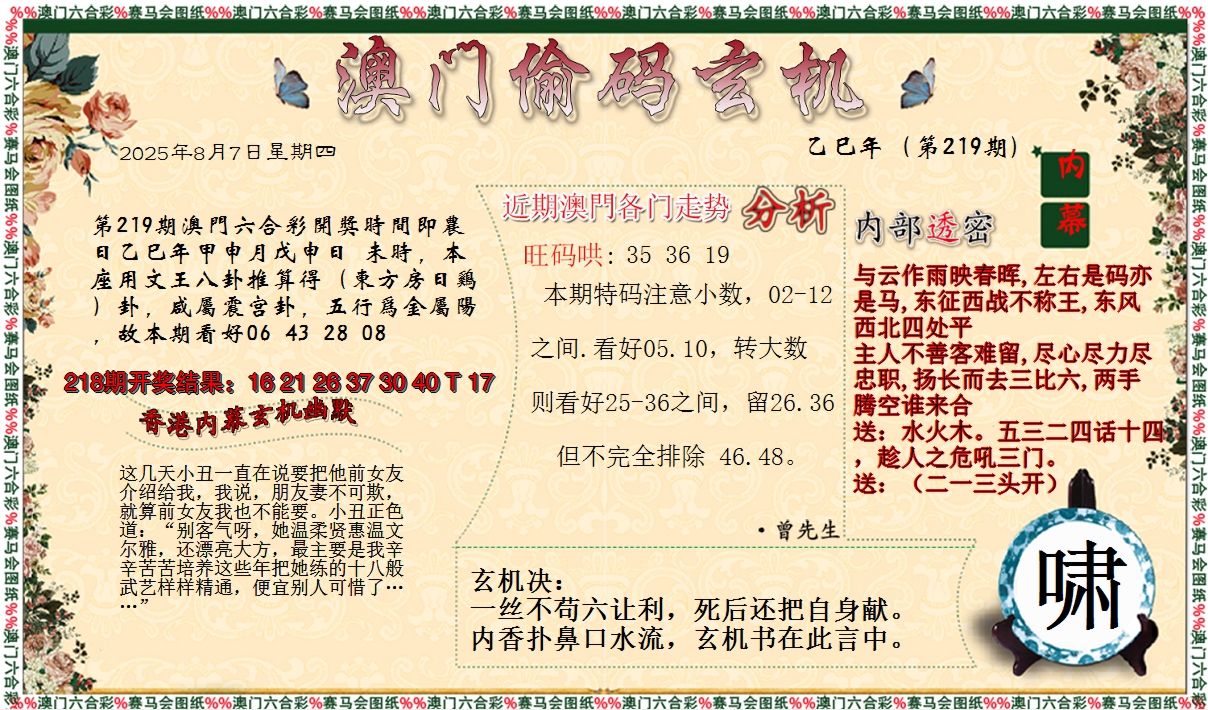 %%澳门六合彩%赛马会图纸%%澳门六合彩%赛马会图纸%%澳门六合彩%赛马会图纸%%澳门六合彩%赛马会图纸%%澳门六合彩%赛马会图纸%%澳门六合彩%赛马会图纸%%
澳门偷码玄机
2025年8月7日星期四
乙巳年（第219期）
内
幕
第219期澳門六合彩開獎時間即農
日乙巳年甲申月戊申日 未時，本
座用文王八卦推算得（東方房日鷄
）卦，咸屬震宫卦，五行爲金屬陽
，故本期看好06 43 28 08
218期开奖结果：16 21 26 37 30 40 T 17
香港内幕玄机幽默
这几天小丑一直在说要把他前女友
介绍给我，我说，朋友妻不可欺，
就算前女友我也不能要。小丑正色
道：“别客气呀，她温柔贤惠温文
尔雅，还漂亮大方，最主要是我辛
辛苦苦培养这些年把她练的十八般
武艺样样精通，便宜别人可惜了…
…”
近期澳門各门走势 分析
旺码哄: 35 36 19
本期特码注意小数，02-12
之间.看好05.10，转大数
则看好25-36之间，留26.36
但不完全排除 46.48。
·曾先生
内部透密
与云作雨映春晖,左右是码亦
是马,东征西战不称王,东风
西北四处平
主人不善客难留,尽心尽力尽
忠职,扬长而去三比六,两手
腾空谁来合
送：水火木。五三二四话十四
，趁人之危吼三门。
送：（二一三头开）
玄机决：
一丝不苟六让利，死后还把自身献。
内香扑鼻口水流，玄机书在此言中。
啸
%%澳门六合彩%赛马会图纸%%澳门六合彩%赛马会图纸%%澳门六合彩%赛马会图纸%%澳门六合彩%赛马会图纸%%澳门六合彩%赛马会图纸%%澳门六合彩%赛马会图纸%%